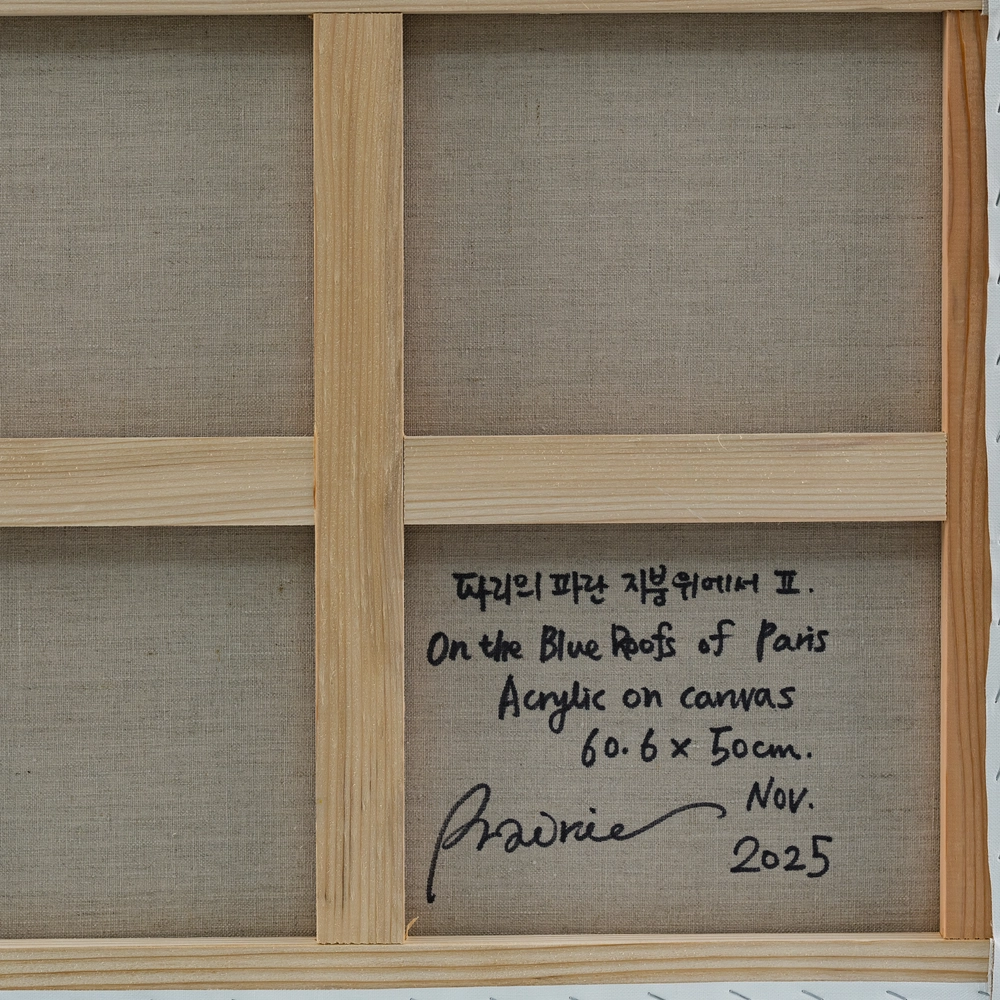 파리의 파란 지붕위에서 Ⅱ.
On the Blue Roofs of Paris
Acrylic on canvas
60.6 x 50cm.
Nov.
2025